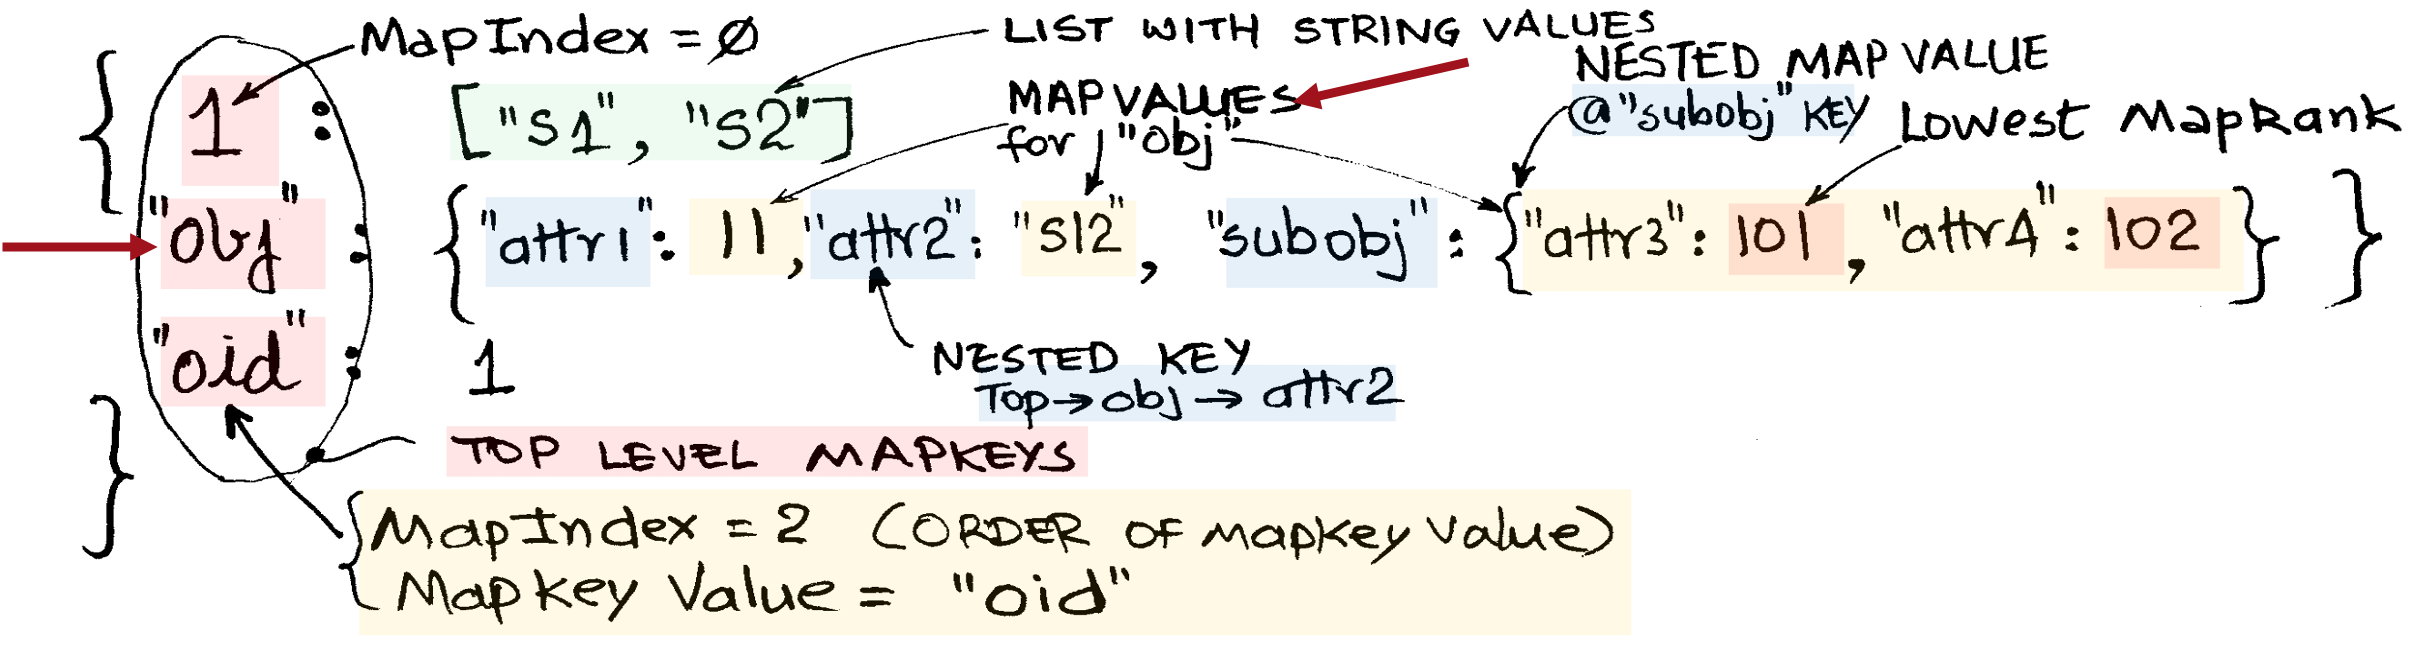 MapIndex = Ø
LIST WITH STRING VALUES
MAP VALUES
for "obj"
NESTED MAP VALUE
@"subobj" KEY
Lowest MapRank
{ 1 : ["S1", "S2"]
"obj" : {"attr1": 11, "attr2": "S12", "subobj": {"attr3": 101, "attr4": 102}}
"oid" : 1
}
NESTED KEY
Top→obj→attr2
TOP LEVEL MAPKEYS
MapIndex = 2 (ORDER OF mapkey value)
Mapkey Value = "oid"